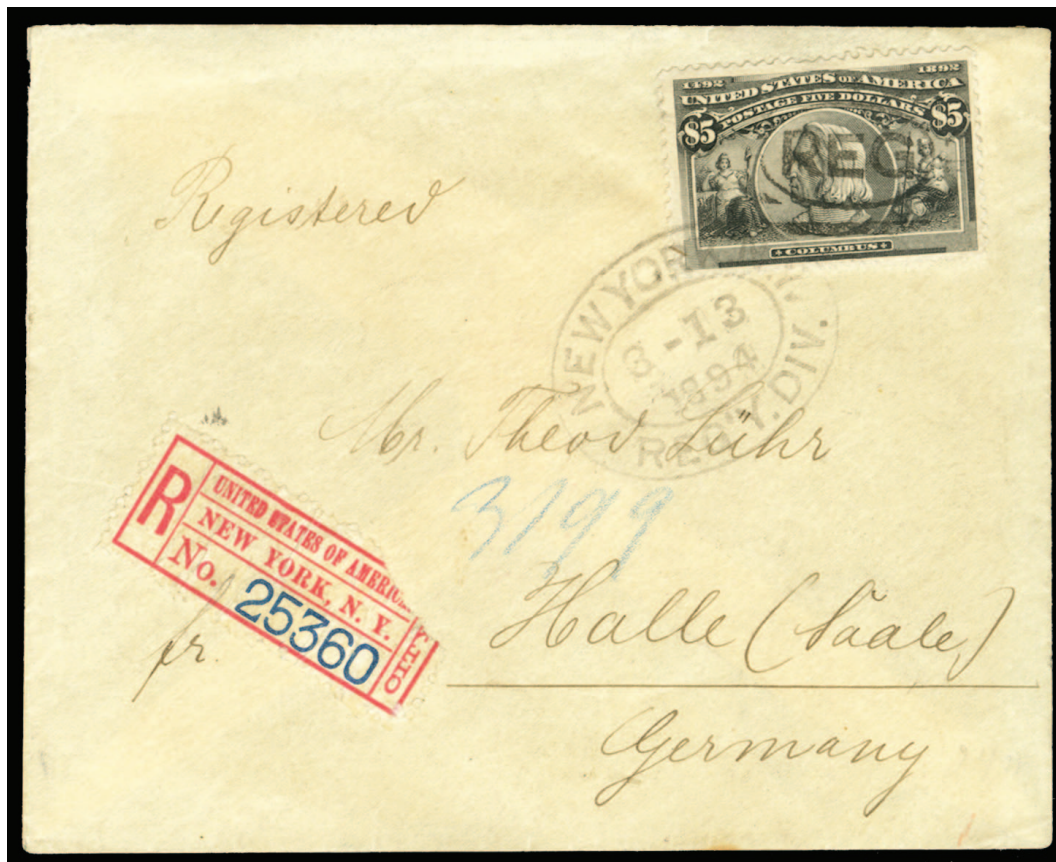 1492 1892
UNITED STATES OF AMERICA
POSTAGE FIVE DOLLARS
$5 $5
REG.
COLUMBUS
Registered
NEW YORK, N.Y.
3-13
1894
REG'Y. DIV.
Mr. Theod Lühr
3199
R
UNITED STATES OF AMERICA.
NEW YORK, N. Y.
No. 25360
fr.
Halle (Saale)
Germany